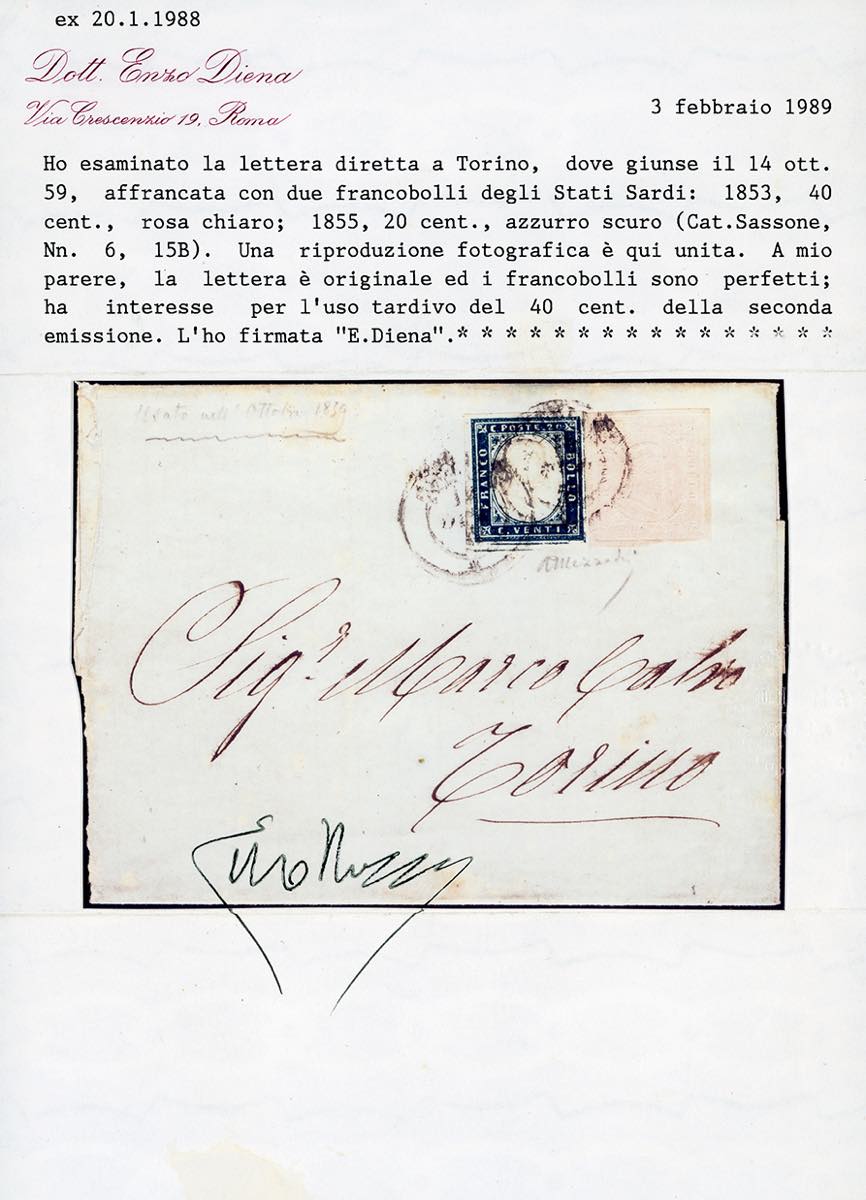 ex 20.1.1988
Dott. Enzo Diena
Via Crescenzio 19, Roma
3 febbraio 1989
Ho esaminato la lettera diretta a Torino, dove giunse il 14 ott.
59, affrancata con due francobolli degli Stati Sardi: 1853, 40
cent., rosa chiaro; 1855, 20 cent., azzurro scuro (Cat.Sassone,
Nn. 6, 15B). Una riproduzione fotografica è qui unita. A mio
parere, la lettera è originale ed i francobolli sono perfetti;
ha interesse per l'uso tardivo del 40 cent. della seconda
emissione. L'ho firmata "E.Diena".* * * * * * * * * * * * * * * *
C. POSTE. 20
FRANCO
BOLLO
C. VENTI
Sigr Marco Calvo
Torino